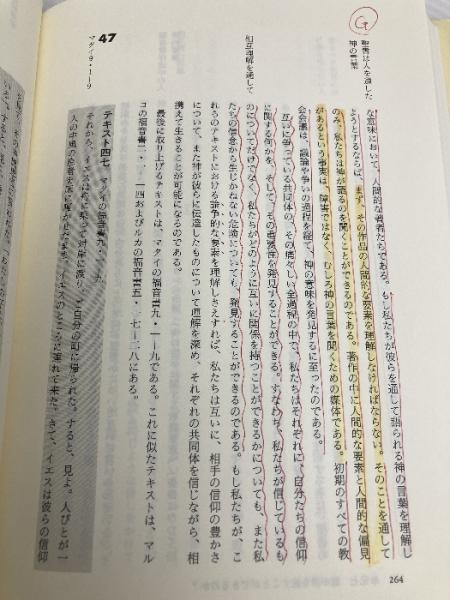 G
聖書は人を通した
神の言葉
な意味において、人間的な著者たちである。もし私たちが彼らを通して語られる神の言葉を理解し
ようとするなら、まず、その作品の人間的な要素を理解しなければならない。そのことを通して
のみ、私たちは神が語るのを聞くことができるのである。著作の中に人間的な要素と人間的な偏見
があるという事実は、障害ではなく、むしろ神の言葉を聞くための媒体である。初期のすべての教
会会議は、議論や争いの過程を経て、神の意味を発見するに至ったのである。
相互理解を通して
互いに争っている共同体の、その痛々しい全過程の中で、私たちはそれぞれに、自分たちの信仰
に関する何かを、そして、その重要性を発見することができる。すなわち、私たちが信じているも
のについてだけでなく、私たちがどのように互いに関係を持つことができるかについても、また私
たちの信念から生じかねない危険についても、発見することができるのである。もし私たちが、こ
れらのテキストにおける論争的な要素を理解しさえすれば、私たちは互いに、相手の信仰の豊かさ
について、また神が彼らに伝達したものについて理解を深め、それぞれの共同体を信じながら、相
携えて生きることが可能になるのである。
最後に取り上げるテキストは、マタイの福音書九・1─九である。これに似たテキストは、マル
コの福音書二・一─一四およびルカの福音書五・一七─二八にある。
47
マタイ9・1─9
テキスト四七 マタイの福音書九・一─九
それから、イエスは舟に乗って対岸に渡り、ご自分の町に帰られた。すると、見よ。人びとが一
人の中風の患者を床に寝かせたまま、イエスのところに連れて来た。さて、イエスは彼らの信仰
264